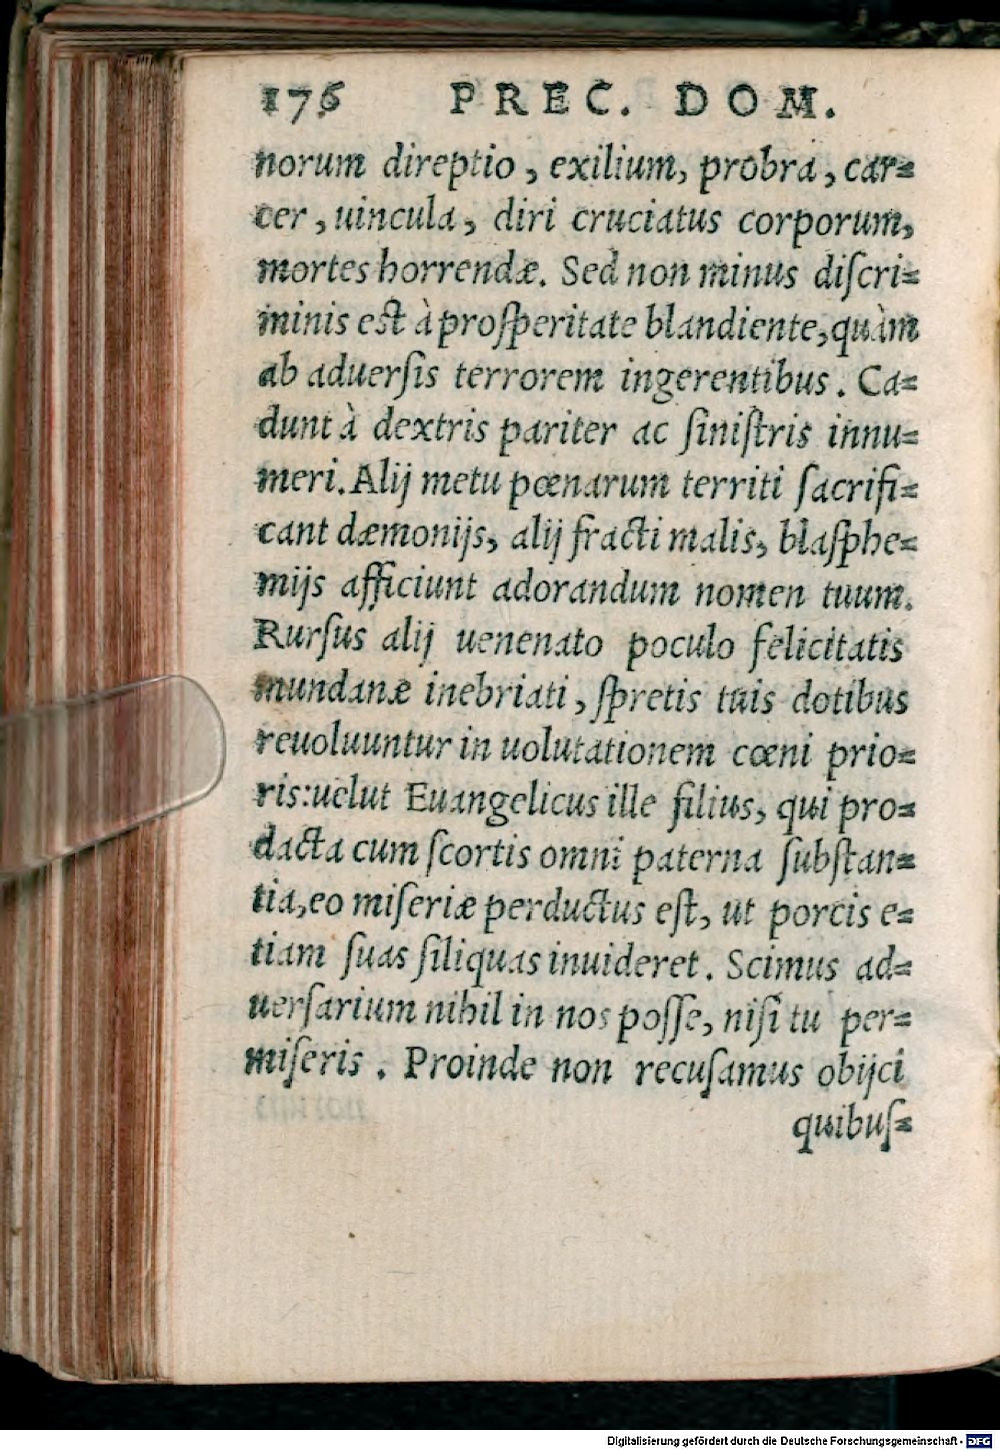 176 PREC. DOM.
norum direptio, exilium, probra, car=
cer, uincula, diri cruciatus corporum,
mortes horrendæ. Sed non minus diſcri=
minis est à proſperitate blandiente, quàm
ab aduerſis terrorem ingerentibus. Ca=
dunt à dextris pariter ac ſiniſtris innu=
meri. Alij metu pœnarum territi ſacrifi=
cant dæmonijs, alij fracti malis, blaſphe=
mijs afficiunt adorandum nomen tuum.
Rurſus alij uenenato poculo felicitatis
mundanæ inebriati, ſpretis tuis dotibus
reuoluuntur in uolutationem cœni prio=
ris: uelut Euangelicus ille filius, qui pro=
dacta cum ſcortis omni paterna ſubſtan=
tia, eo miſeriæ perductus eſt, ut porcis e=
tiam ſuas ſiliquas inuideret. Scimus ad=
uerſarium nihil in nos poſſe, niſi tu per=
miſeris. Proinde non recuſamus obijci
quibuſ=
Digitalisierung gefördert durch die Deutsche Forschungsgemeinschaft - DFG